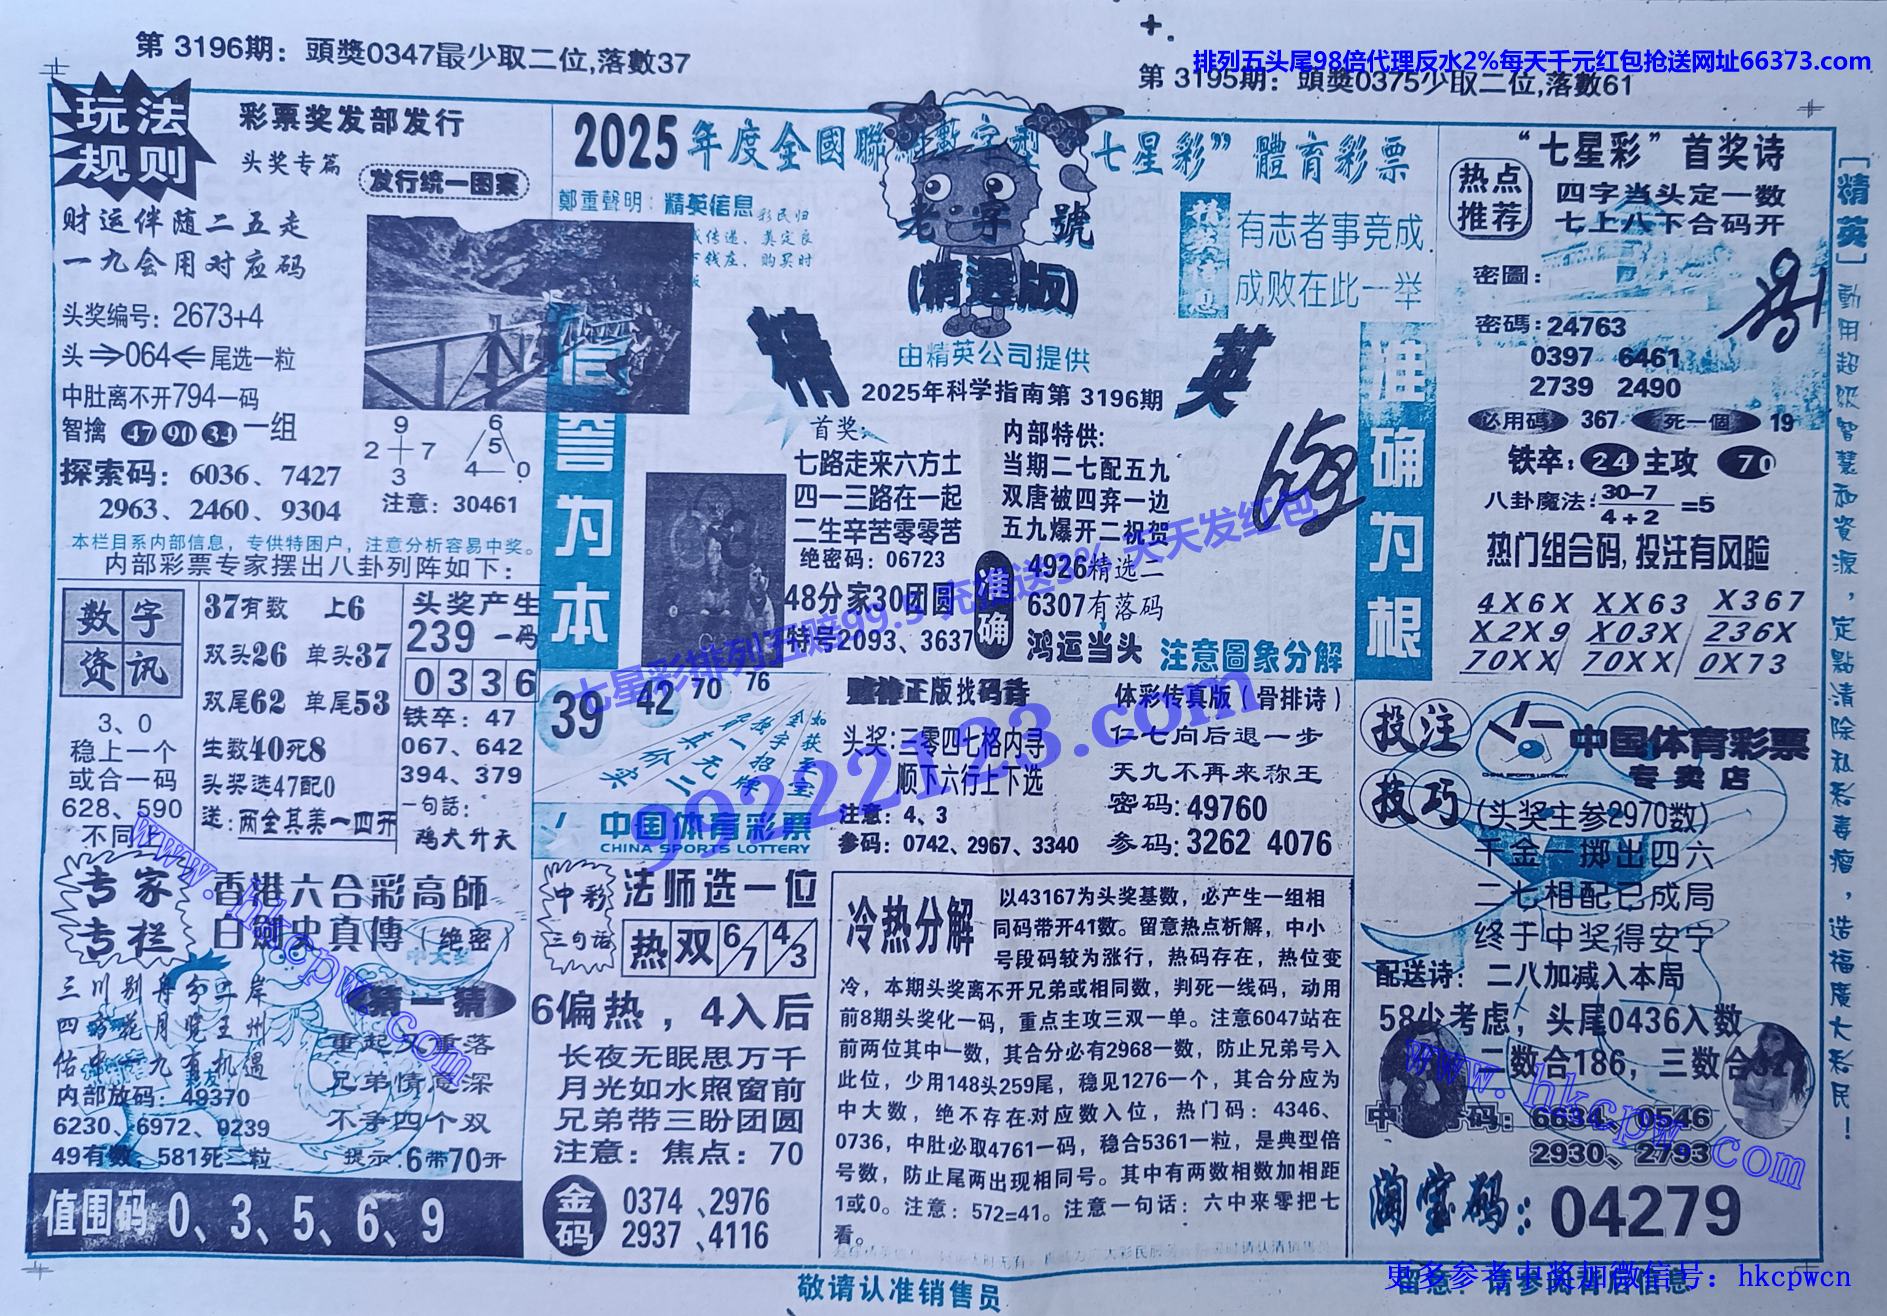 第 3196期：頭獎0347最少取二位,落數37
排列五头尾98倍代理反水2%每天千元红包抢送网址66373.com
第 3195期：頭獎0375少取二位,落數61
玩法
规则
彩票奖发部发行
头奖专篇
发行统一图案
财运伴随二五走
一九会用对应码
头奖编号：2673+4
头⇒064⇐尾选一粒
中肚离不开794一码
智擒 47 90 34 一组
探索码：6036、7427
2963、2460、9304
9
2+7
3
6
5
4—0
注意：30461
本栏目系内部信息，专供特困户，注意分析容易中奖。
内部彩票专家摆出八卦列阵如下：
数字
资讯
3、0
稳上一个
或合一码
628、590
不同上
37有数 上6
双头26 单头37
双尾62 单尾53
生数40死8
头奖选47配0
送：两全其美一四开
头奖产生
239 一码
0336
铁卒：47
067、642
394、379
一句話：
鸡犬升天
专家
专栏
香港六合彩高師
白劍史真傳（绝密）
三川别舟分二岸
内部放码：49370
6230、6972、9239
49有数，581死二粒
猜一猜
重起又重落
兄弟情意深
不争四个双
提示：6带70开
值围码 0、3、5、6、9
2025年度全國聯網數字型“七星彩”體育彩票
鄭重聲明：精英信息
老字號
(精選版)
由精英公司提供
2025年科学指南第 3196期
精英
有志者事竞成
成败在此一举
信誉为本
准确为根
首奖：
七路走来六方土
四一三路在一起
二生辛苦零零苦
绝密码：06723
48分家30团圆
特号2093、3637
内部特供:
当期二七配五九
双唐被四弃一边
五九爆开二祝贺
准确
4926精选二
6307有落码
鸿运当头
注意圖象分解
39 42 70 76
中国体育彩票
CHINA SPORTS LOTTERY
赌神正版找码诗
头奖:三零四七格内寻
顺下六行上下选
注意：4、3
参码：0742、2967、3340
体彩传真版（骨排诗）
仁七向后退一步
天九不再来称王
密码:49760
参码:3262 4076
中彩
三句话
法师选一位
热 双 6/7 4/3
6偏热，4入后
长夜无眠思万千
月光如水照窗前
兄弟带三盼团圆
注意：焦点：70
金码
0374、2976
2937、4116
冷热分解
以43167为头奖基数，必产生一组相
同码带开41数。留意热点析解，中小
号段码较为涨行，热码存在，热位变
冷，本期头奖离不开兄弟或相同数，判死一线码，动用
前8期头奖化一码，重点主攻三双一单。注意6047站在
前两位其中一数，其合分必有2968一数，防止兄弟号入
此位，少用148头259尾，稳见1276一个，其合分应为
中大数，绝不存在对应数入位，热门码：4346、
0736，中肚必取4761一码，稳合5361一粒，是典型倍
号数，防止尾两出现相同号。其中有两数相数加相距
1或0。注意：572=41。注意一句话：六中来零把七
看。
敬请认准销售员
“七星彩”首奖诗
热点
推荐
四字当头定一数
七上八下合码开
密圖：
密碼：24763
0397 6461
2739 2490
必用碼 367 死一個 19
铁卒：24 主攻 70
八卦魔法：30-7/4+2=5
热门组合码,投注有风险
4X6X XX63 X367
X2X9 X03X 236X
70XX 70XX 0X73
投注
技巧
中国体育彩票
CHINA SPORTS LOTTERY
专卖店
(头奖主参2970数)
千金一掷出四六
二七相配已成局
终于中奖得安宁
配送诗：二八加减入本局
58少考虑，头尾0436入数
二数合186，三数合
6634、0546
2930、2793
淘宝码：04279
[精英]動用超级智慧和資源，定點清除私彩毒瘤，造福廣大彩民！
七星彩排列五赔99.5 充推送3% 天天发红包
99222123.com
www.hkcpw.com
www.hkcpw.com
更多参考中奖加微信号：hkcpwcn